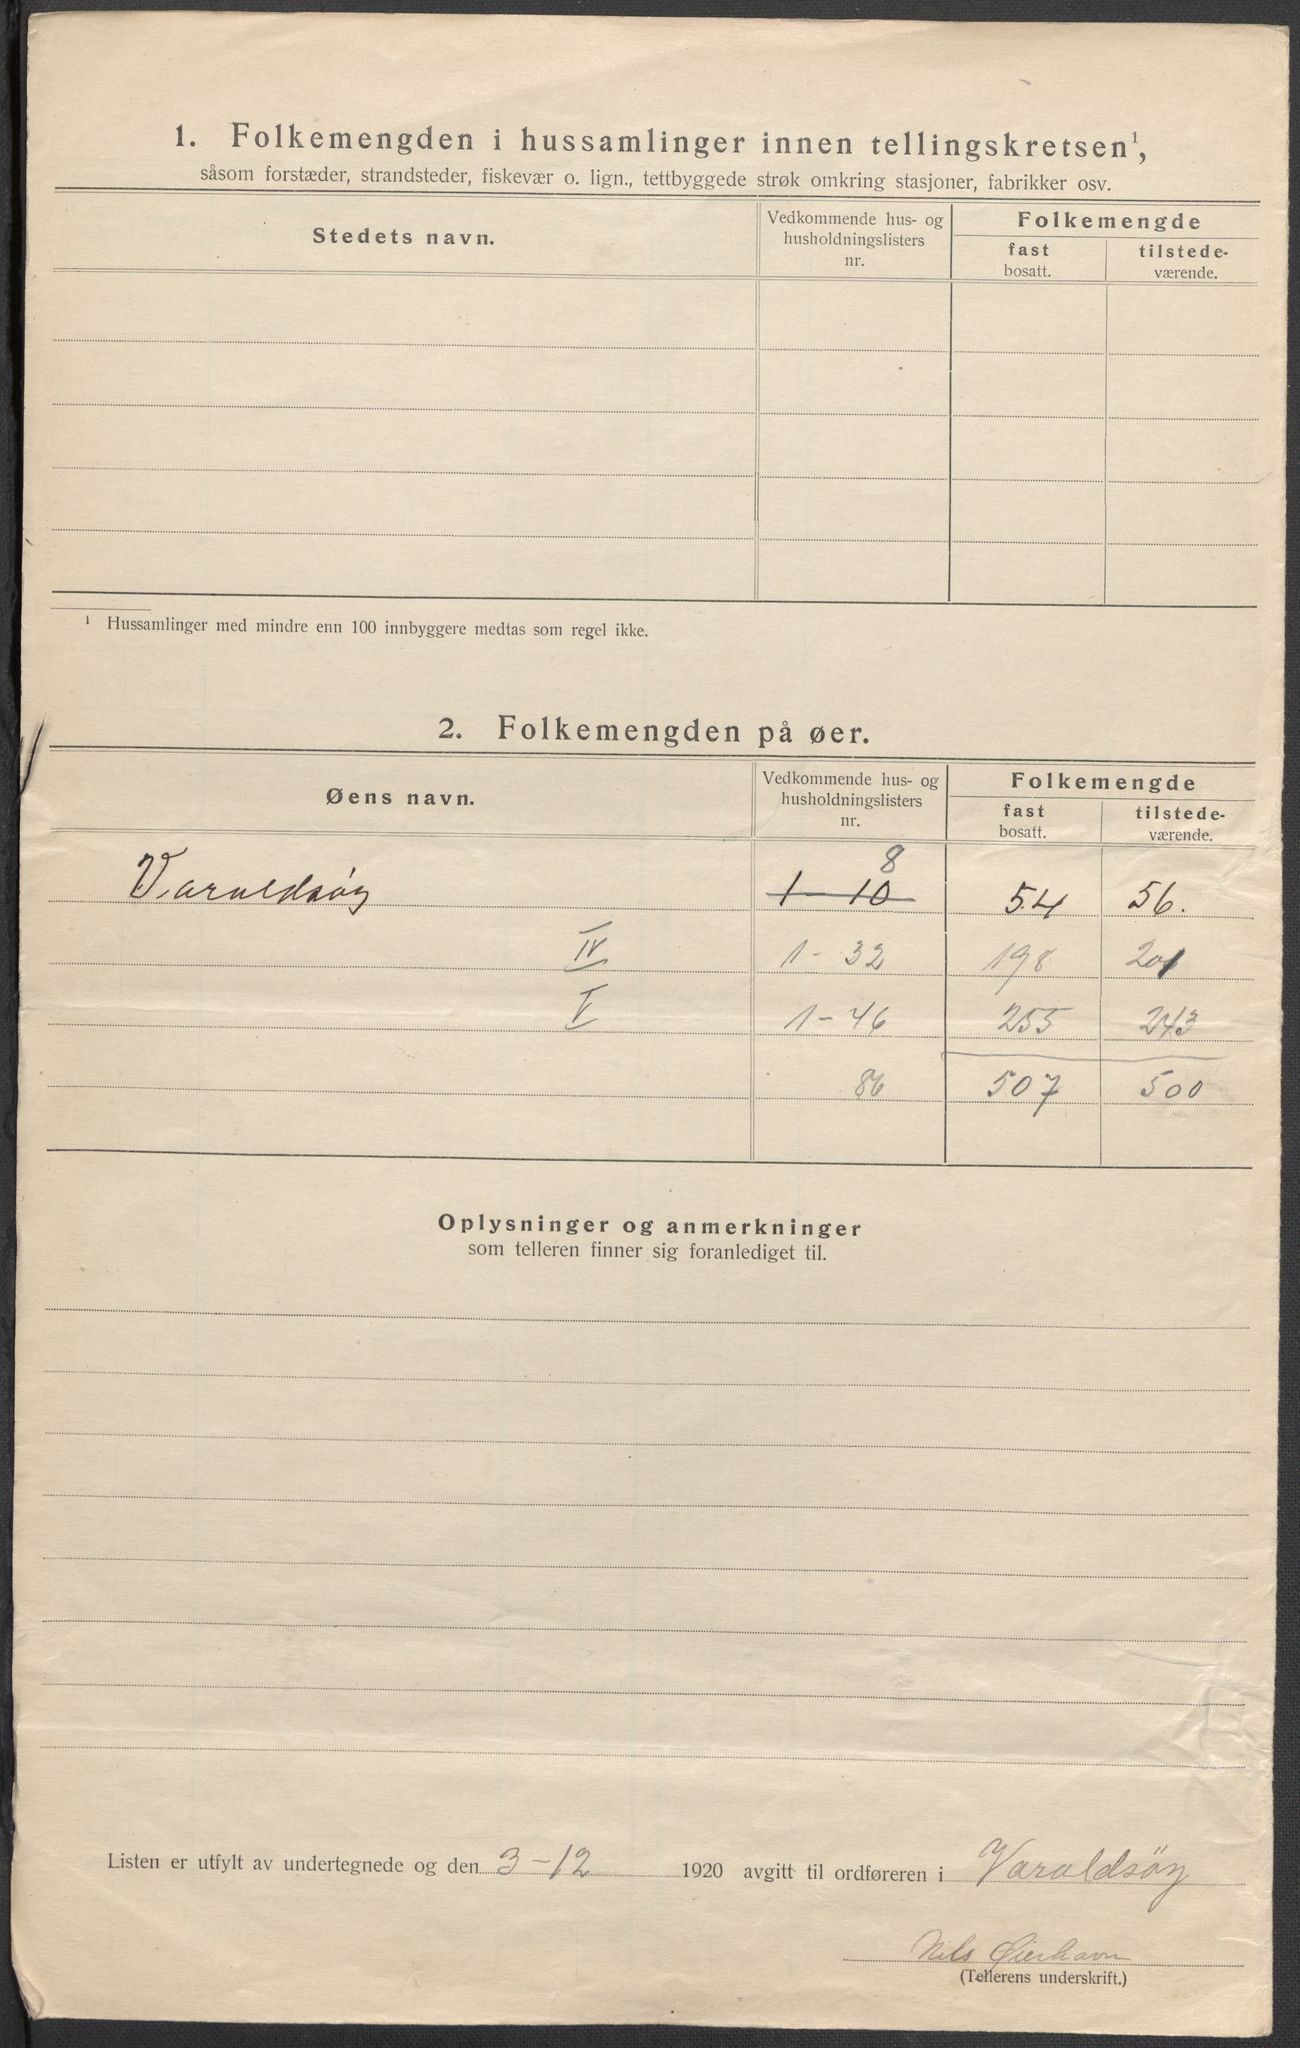 1. Folkemengden i hussamlinger innen tellingskretsen¹,
såsom forstæder, strandsteder, fiskevær o. lign., tettbyggede strøk omkring stasjoner, fabrikker osv.
Stedets navn.
Vedkommende hus- og husholdningslisters nr.
Folkemengde
fast bosatt.
tilstede-værende.
¹ Hussamlinger med mindre enn 100 innbyggere medtas som regel ikke.
2. Folkemengden på øer.
Øens navn.
Vedkommende hus- og husholdningslisters nr.
Folkemengde
fast bosatt.
tilstede-værende.
8
Varaldsøy 1-10 54 56.
IV 1-32 198 201
V 1-46 255 243
86 507 500
Oplysninger og anmerkninger
som telleren finner sig foranlediget til.
Listen er utfylt av undertegnede og den 3-12 1920 avgitt til ordføreren i Varaldsøy
Nils Øierhavn
(Tellerens underskrift.)